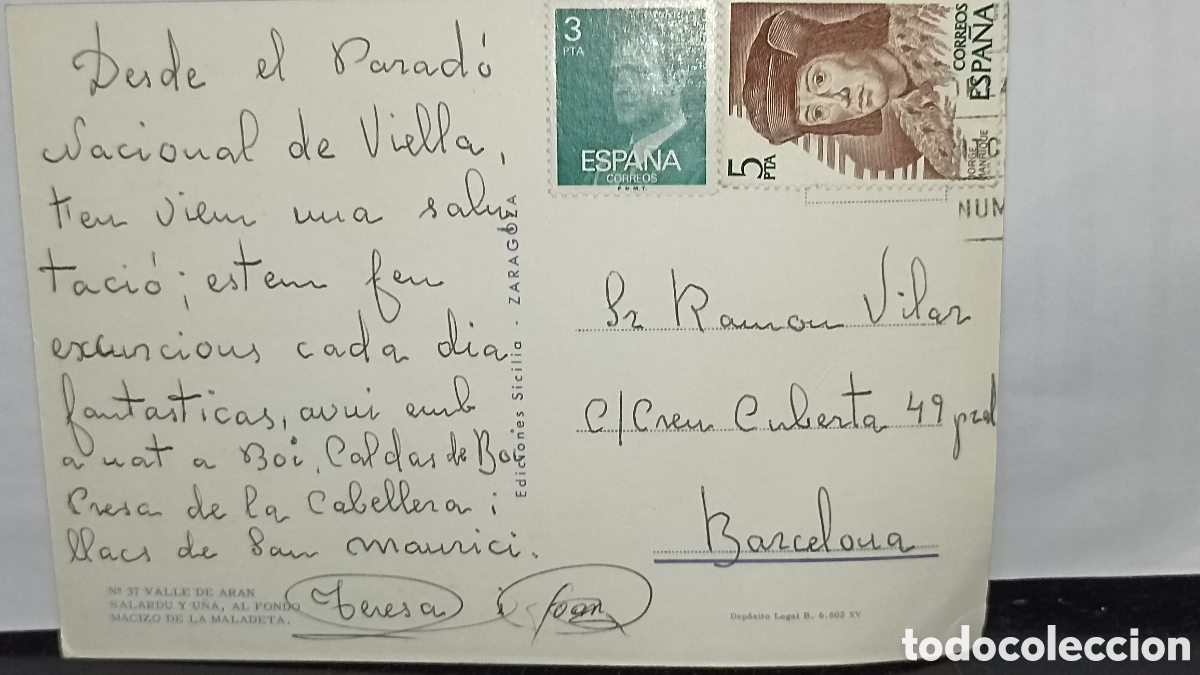 Desde el Paradó
Nacional de Viella,
t'en viem una salu
tació; estem fen
excuncious cada dia
fantasticas, avui emb
a nat a Boi, Caldas de Boi
Presa de la Cabellera i
llacs de San Maurici.
Teresa i Joan
Nº 37 VALLE DE ARAN
SALARDU Y UÑA, AL FONDO
MACIZO DE LA MALADETA.
Ediciones Sicilia - ZARAGOZA
3
PTA
ESPAÑA
CORREOS
F.N.M.T.
5 PTA
JORGE MANRIQUE
CORREOS
ESPAÑA
NUM
Sr Ramon Vilar
C/Creu Cuberta 49 pral
Barcelona
Depósito Legal B. 6.602 XV
todocoleccion